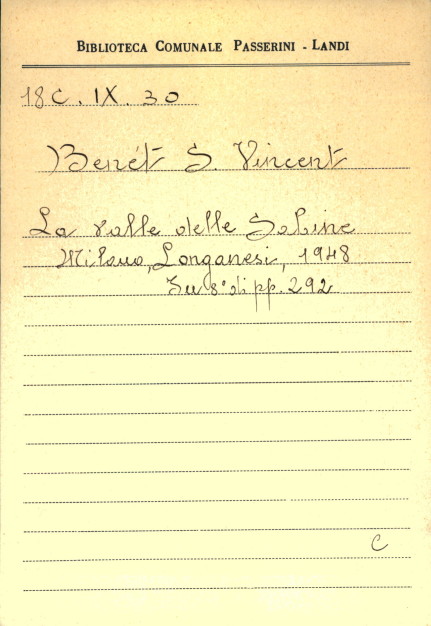 BIBLIOTECA COMUNALE PASSERINI - LANDI
18C. IX. 30
Benét S. Vincent
La valle delle Sabine
Milano, Longanesi, 1948
In 8° di pp. 292
C